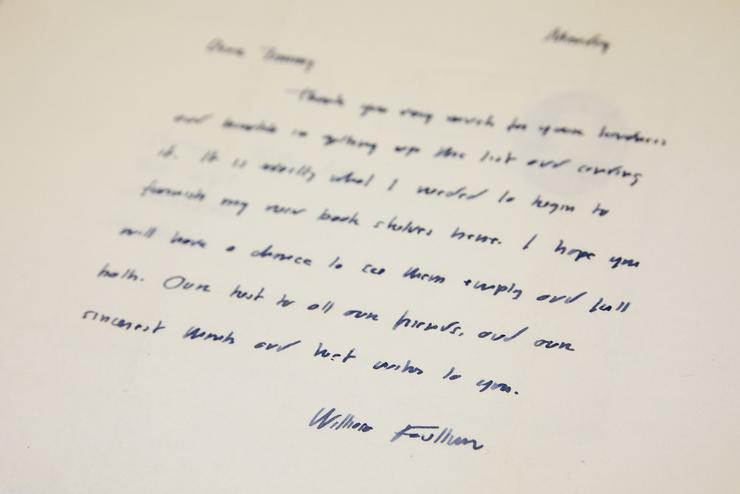 Monday
Dear Tommy
Thank you very much for your kindness
and trouble in getting up the list and sending
it. It is exactly what I needed to begin to
furnish my new book shelves here. I hope you
will have a chance to see them empty and full
both. Our best to all our friends, and our
sincerest thanks and best wishes to you.
William Faulkner